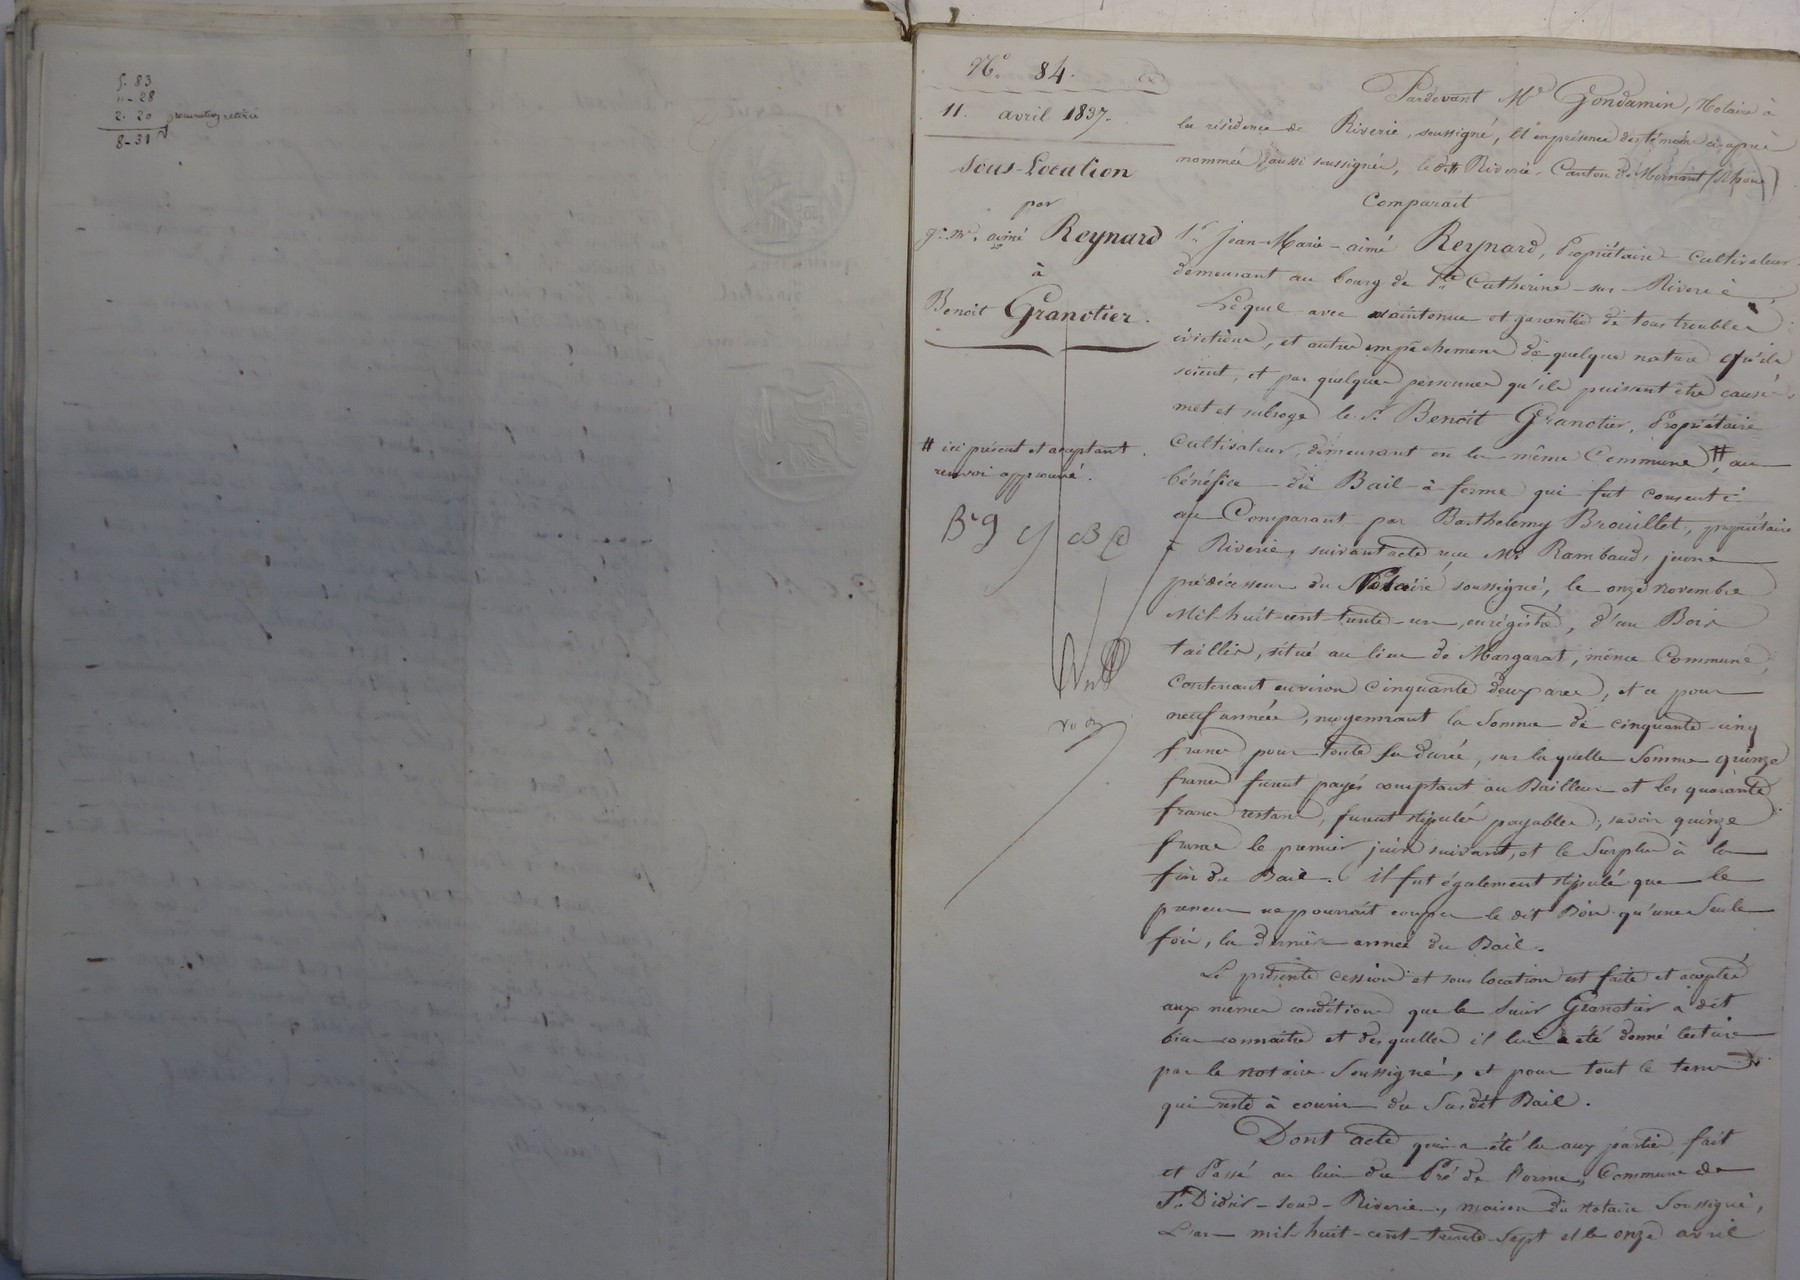 5. 83
n- 28
2. 20
8- 31
N.o 84.
11. avril 1837.
Sous-Location
par
J.n M.ie aimé Reynard
à
Benoit Granotier.
# ici présent et acceptant.
renvoi approuvé.
Pardevant M.e Gondamin, Notaire à
la résidence de Riverie, soussigné, et en présence des témoins ci-après
nommés aussi soussignés, le dit Riverie, Canton de Mornant (Rhône)
Comparait
S.r Jean-Marie-aimé Reynard, Propriétaire-Cultivateur
demeurant au bourg de S.te Catherine-sur-Riverie,
Lequel avec maintenue et garantie de tous troubles
évictions, et autres empêchemens de quelque nature qu'ils
soient, et par quelques personnes qu'ils puissent être causés
met et subroge le S.r Benoit Granotier, Propriétaire
Cultivateur, demeurant en la même Commune #, au
bénéfice du Bail à ferme qui fut consenti
au Comparant par Barthelemy Brouillet, propriétaire
à Riverie, suivant acte reçu M.e Rambaud, jeune
prédécesseur du Notaire soussigné, le onze novembre
Mil-huit-cent-trente-un, enregistré, d'un Bois
taillis, situé au lieu de Margarat, même Commune,
Contenant environ cinquante deux ares, et ce pour
neuf années, moyennant la somme de cinquante cinq
francs pour toute sa durée, sur laquelle Somme quinze
francs furent payés comptant au Bailleur et les quarante
francs restans, furent stipulés payables, savoir quinze
francs le premier juin suivant, et le Surplus à la
fin du Bail. il fut également stipulé que le
preneur ne pourrait couper le dit Bois qu'une Seule
fois, la dernière année du Bail.
La présente cession et sous location est faite et acceptée
aux mêmes conditions que le Sieur Granotier a dit
bien connaître et desquelles il lui a été donné lecture
par le notaire Soussigné, et pour tout le tems
qui reste à courir du Susdit Bail.
Dont acte qui a été lu aux parties, fait
et Passé au lieu du Pré de lorme, Commune de
S.t Didier-sous-Riverie, maison du Notaire Soussigné,
L'an mil-huit-cent-trente-Sept et le onze avril